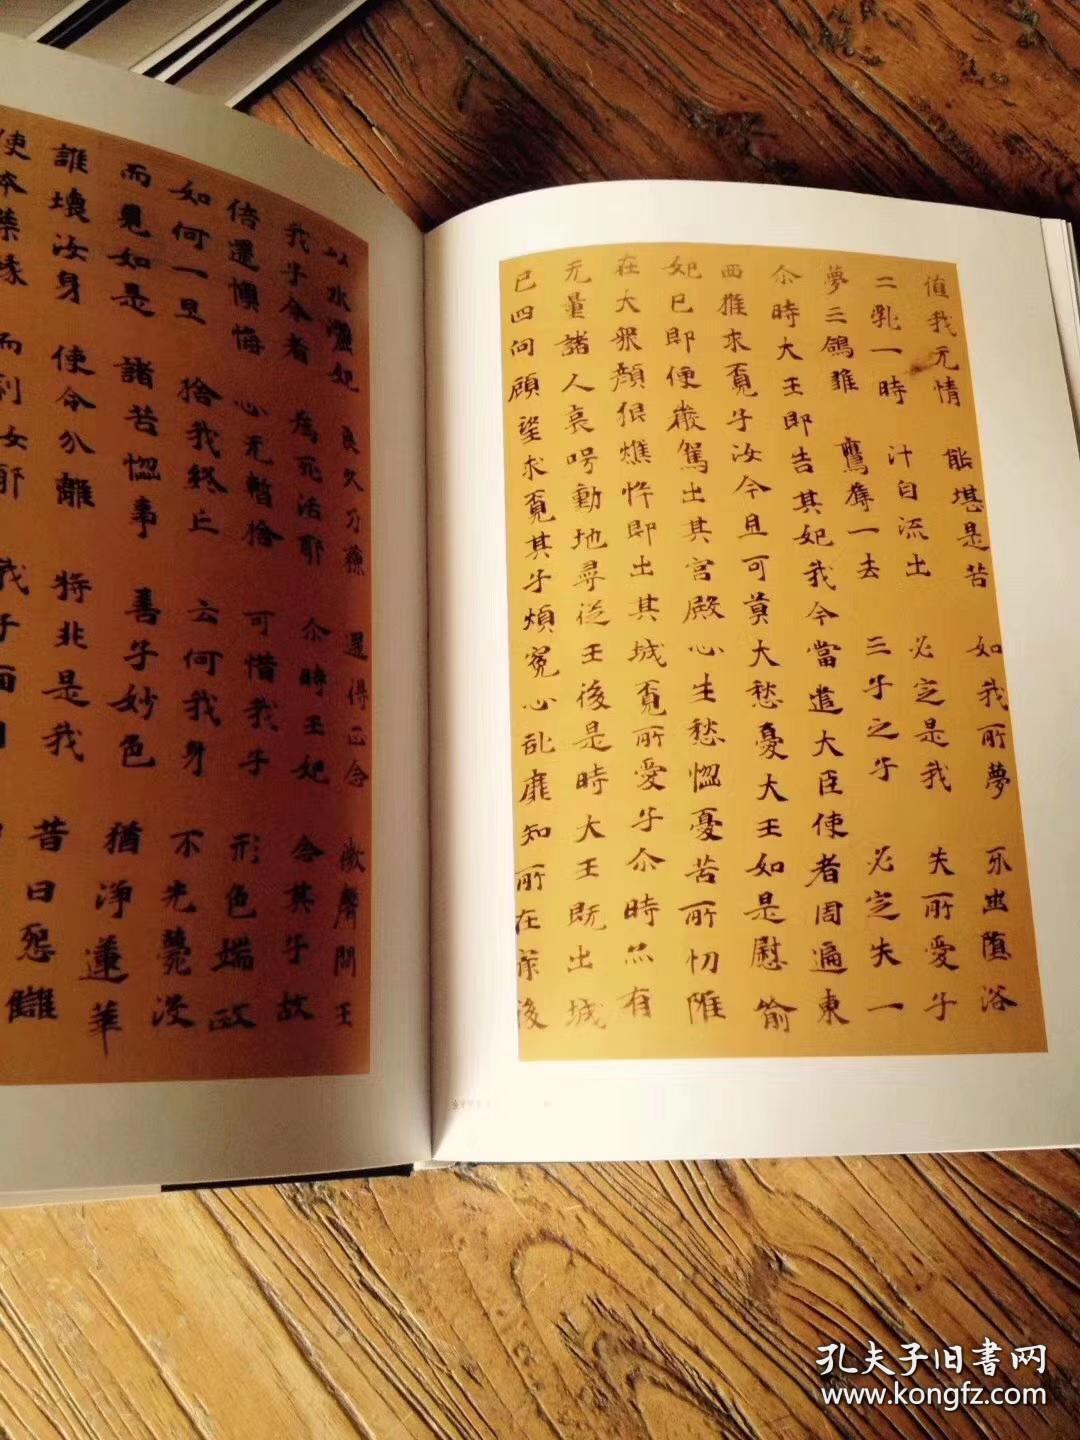 以水灑妃 良久乃蘇 還得正念 微聲問王
我子今者 為死活耶 尒時王妃 念其子故
倍還懊悔 心无暫捨 可惜我子 形色端政
如何一旦 捨我終亡 云何我身 不先薨沒
而見如是 諸苦惱事 善子妙色 猶淨蓮華
誰壞汝身 使令分離 将非是我 昔日怨讎
使本業緣 而刹汝耶 我子面目
值我无情 能堪是苦 如我所夢 牙齒墮落
二乳一時 汁自流出 必定是我 失所愛子
夢三鴿雛 鷹奪一去 三子之子 必定失一
尒時大王即告其妃我今當遣大臣使者周遍東
西推求覓子汝今且可莫大愁憂大王如是慰喻
妃已即便嚴駕出其宮殿心生愁惱憂苦所切雖
在大眾顏貌憔悴即出其城覓所愛子尒時亦有
无量諸人哀号動地尋從王後是時大王既出城
已四向顧望求覓其子煩冤心乱靡知所在寂後
孔夫子旧書网
www.kongfz.com